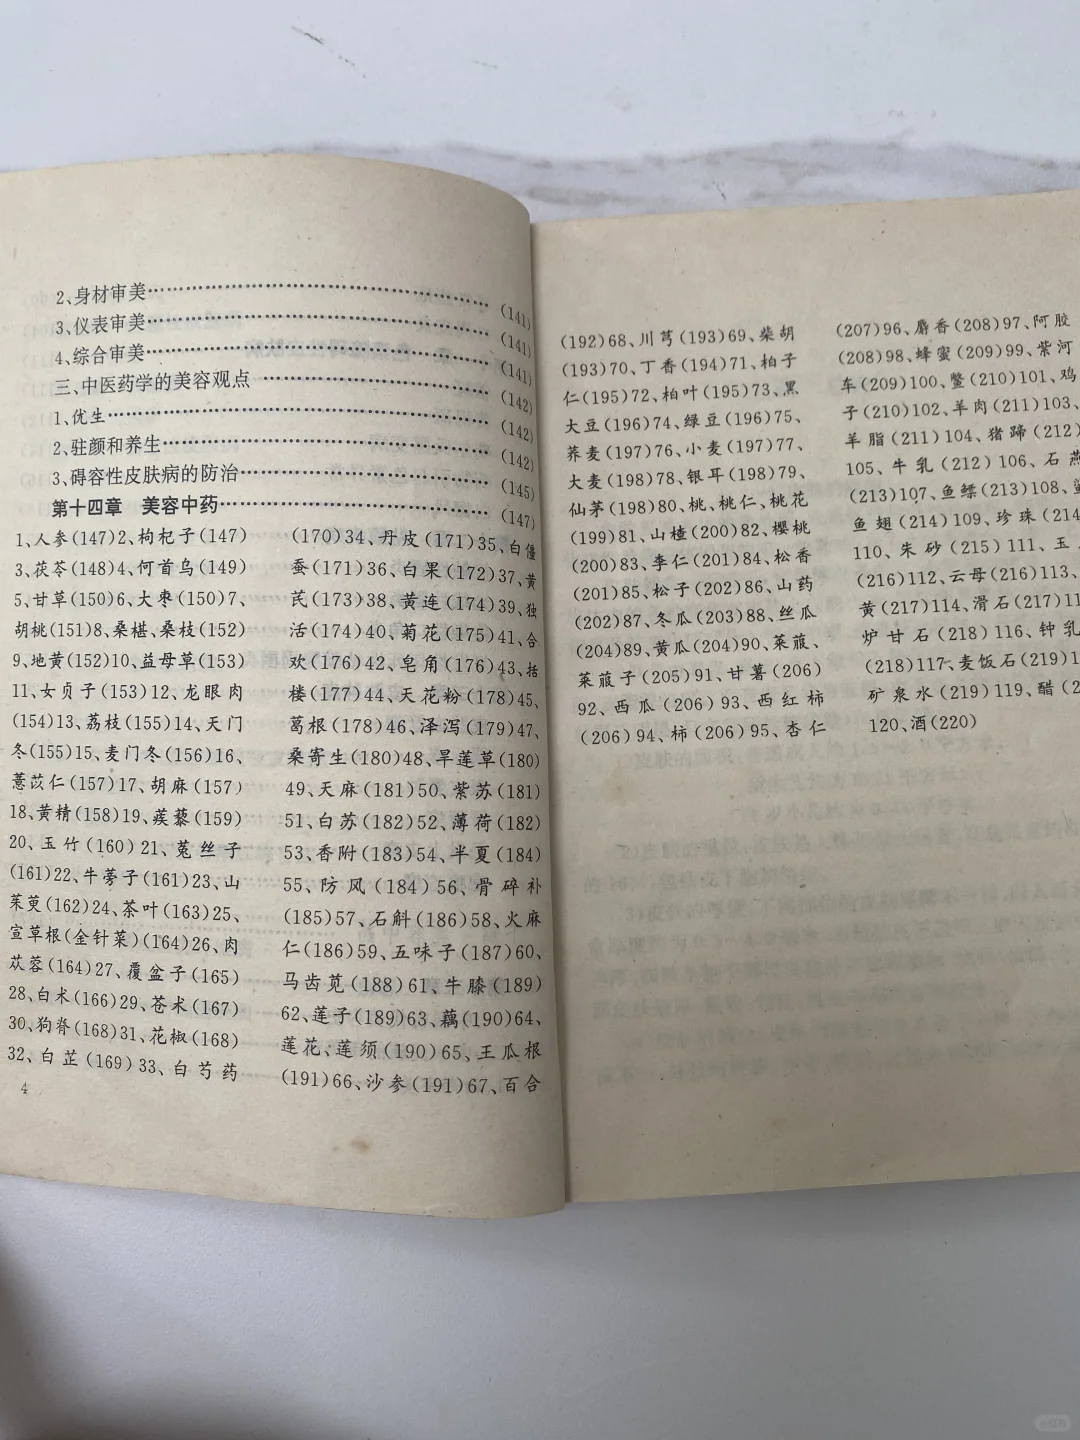 2、身材审美……………………………………(141)
3、仪表审美……………………………………(141)
4、综合审美……………………………………(141)
三、中医药学的美容观点……………………(142)
1、优生…………………………………………(142)
2、驻颜和养生…………………………………(142)
3、碍容性皮肤病的防治………………………(145)
第十四章 美容中药…………………………(147)
1、人参(147)2、枸杞子(147)
3、茯苓(148)4、何首乌(149)
5、甘草(150)6、大枣(150)7、
胡桃(151)8、桑椹、桑枝(152)
9、地黄(152)10、益母草(153)
11、女贞子(153)12、龙眼肉
(154)13、荔枝(155)14、天门
冬(155)15、麦门冬(156)16、
薏苡仁(157)17、胡麻(157)
18、黄精(158)19、蒺藜(159)
20、玉竹(160)21、菟丝子
(161)22、牛蒡子(161)23、山
茱萸(162)24、茶叶(163)25、
宣草根(金针菜)(164)26、肉
苁蓉(164)27、覆盆子(165)
28、白术(166)29、苍术(167)
30、狗脊(168)31、花椒(168)
32、白芷(169)33、白芍药
4
(170)34、丹皮(171)35、白僵
蚕(171)36、白果(172)37、黄
芪(173)38、黄连(174)39、独
活(174)40、菊花(175)41、合
欢(176)42、皂角(176)43、括
楼(177)44、天花粉(178)45、
葛根(178)46、泽泻(179)47、
桑寄生(180)48、旱莲草(180)
49、天麻(181)50、紫苏(181)
51、白苏(182)52、薄荷(182)
53、香附(183)54、半夏(184)
55、防风(184)56、骨碎补
(185)57、石斛(186)58、火麻
仁(186)59、五味子(187)60、
马齿苋(188)61、牛膝(189)
62、莲子(189)63、藕(190)64、
莲花、莲须(190)65、王瓜根
(191)66、沙参(191)67、百合
(192)68、川芎(193)69、柴胡
(193)70、丁香(194)71、柏子
仁(195)72、柏叶(195)73、黑
大豆(196)74、绿豆(196)75、
荞麦(197)76、小麦(197)77、
大麦(198)78、银耳(198)79、
仙茅(198)80、桃、桃仁、桃花
(199)81、山楂(200)82、樱桃
(200)83、李仁(201)84、松香
(201)85、松子(202)86、山药
(202)87、冬瓜(203)88、丝瓜
(204)89、黄瓜(204)90、莱菔、
莱菔子(205)91、甘薯(206)
92、西瓜(206)93、西红柿
(206)94、柿(206)95、杏仁
(207)96、麝香(208)97、阿胶
(208)98、蜂蜜(209)99、紫河
车(209)100、鳖(210)101、鸡
子(210)102、羊肉(211)103、
羊脂(211)104、猪蹄(212)
105、牛乳(212)106、石燕
(213)107、鱼鳔(213)108、
鱼翅(214)109、珍珠(214
110、朱砂(215)111、玉
(216)112、云母(216)113、
黄(217)114、滑石(217)11
炉甘石(218)116、钟乳
(218)117、麦饭石(219)1
矿泉水(219)119、醋(2
120、酒(220)